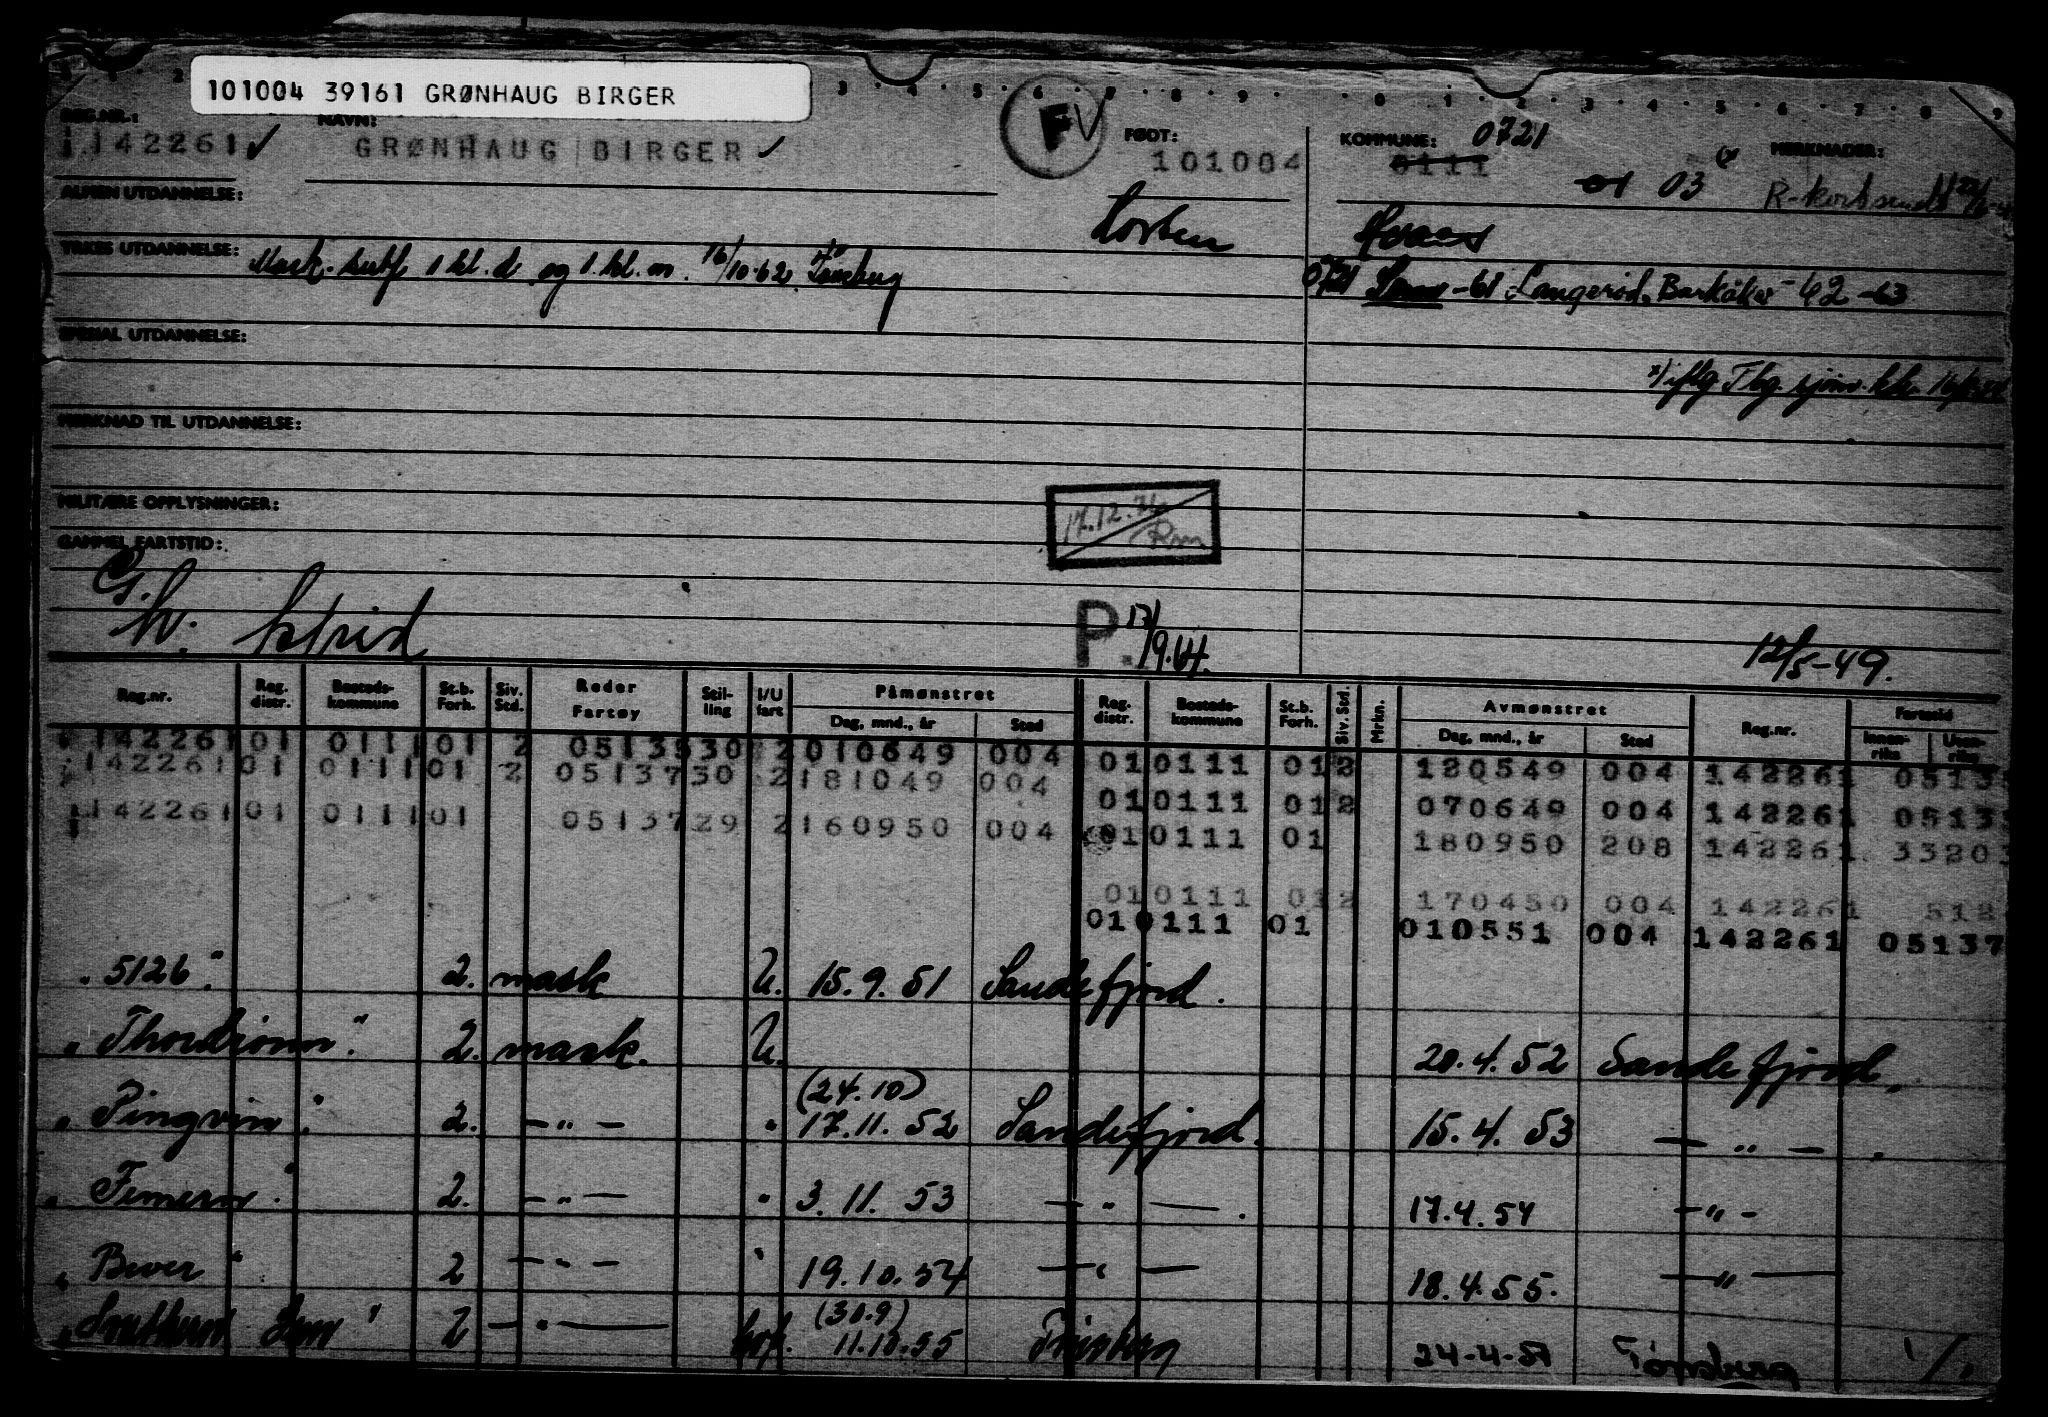 101004 39161 GRØNHAUG BIRGER
REG.NR.: NAVN: FØDT: KOMMUNE: 0721 MERKNADER:
142261 GRØNHAUG BIRGER F 101004 0111 01 03 R-kort sendt
ALMEN UTDANNELSE: Horten
YRKES UTDANNELSE: Mask. sert. 1 kl. d. og 1. kl. m. 16/10-62 Tønsberg
0721 Sem -61 Langerød, Barkåker -62 -63
SPESIAL UTDANNELSE:
x) iflg. Tbg. sjøm.
MERKNAD TIL UTDANNELSE:
MILITÆRE OPPLYSNINGER:
17.12.76
GAMMEL FARTSTID:
G.
h: Astrid P. 17/9.64. 12/5-49.
Reg.nr. Reg. distr. Bosteds-kommune St.b. Forh. Siv. Std. Reder Fartøy Stil-ling I/U fart Påmønstret Dag, mnd., år Sted Reg. distr. Bosteds-kommune St.b. Forh. Siv. Std. Mrkn. Avmønstret Dag, mnd., år Sted Reg.nr. Fartstid Innen-riks Uten-riks
142261 01 0111 01 2 05135 30 2 010649 004 01 0111 01 2 120549 004 142261 0513
142261 01 0111 01 2 05137 30 2 181049 004 01 0111 01 2 070649 004 142261 0513
142261 01 0111 01 05137 29 2 160950 004 01 0111 01 180950 208 142261 33203
01 0111 01 2 170450 004 142261 512
01 0111 01 010551 004 142261 05137
"5126". 2. mask U. 15.9.51 Sandefjord.
"Thordrönn". 2. mask. U. 20.4.52 Sandefjord.
(24.10)
"Pingvin". 2. — " — " 17.11.52 Sandefjord. 15.4.53 — " — .
"Fimern". 2. — " — " 3.11.53 — " — . 17.4.54 — " —
"Bever" 2 — " — " 19.10.54 — " — 18.4.55. — " —
(30.9)
"Southern Gem" 2 — " — hvf. 11.10.55 Tønsberg 24-4-57 Tønsberg